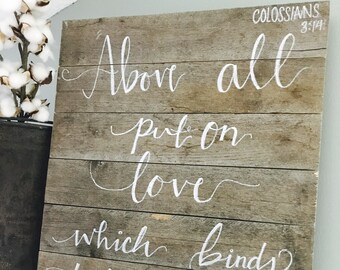 COLOSSIANS
3:14
Above all
put on
love
which binds